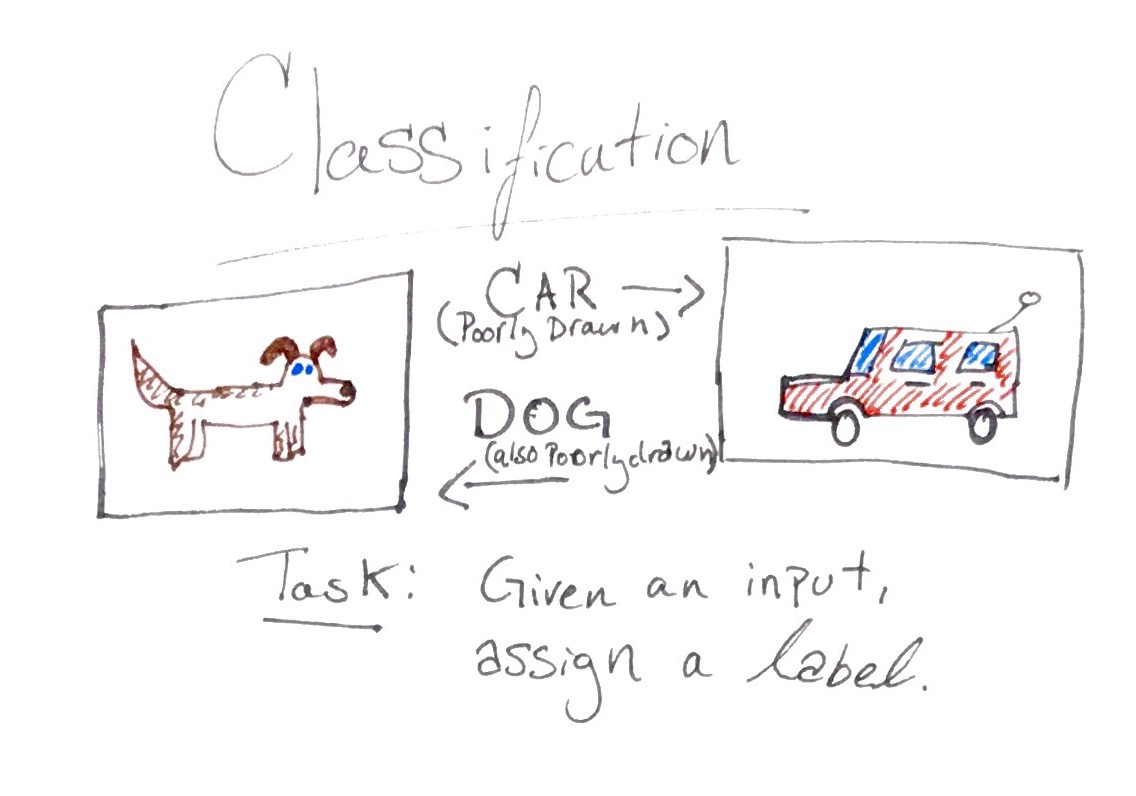 Classification
CAR
(Poorly Drawn)
DOG
(also Poorly drawn)
Task: Given an input,
assign a label.